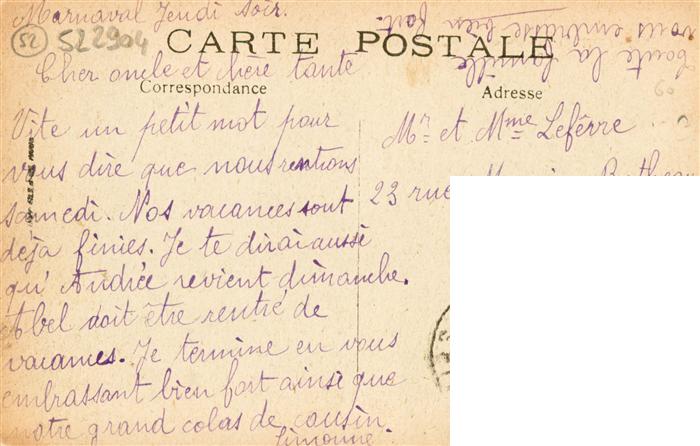 Marnaval Jeudi soir.
52 522904
CARTE POSTALE
toute la famille
vous embrasse bien fort.
Cher oncle et chère tante
Correspondance
Vite un petit mot pour
vous dire que nous rentrons
samedi. Nos vacances sont
déja finies. Je te dirai aussi
qu'Andrée revient dimanche.
Abel doit être rentré de
vacances. Je termine en vous
embrassant bien fort ainsi que
notre grand colas de cousin.
Simonne.
Adresse
Mr et Mme Lefèvre
23 rue